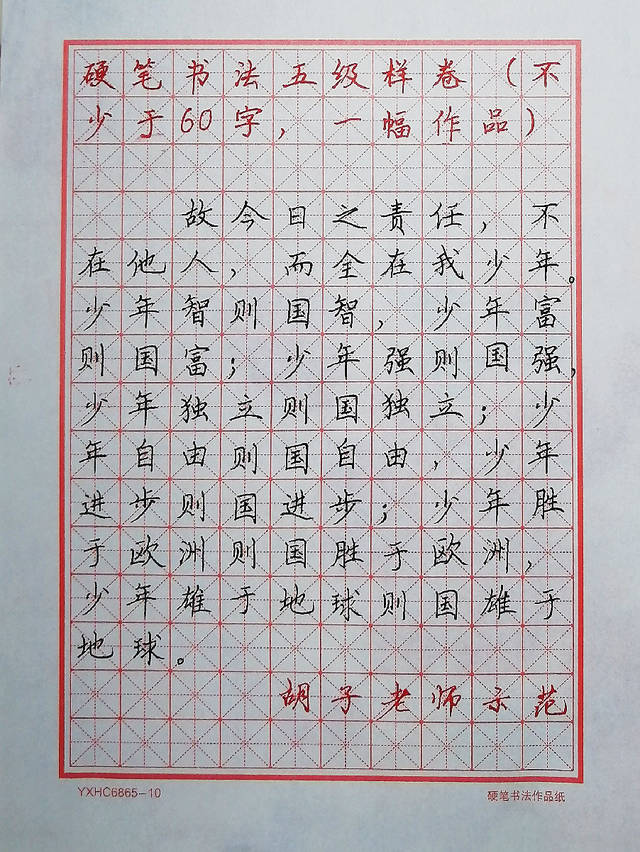 硬笔书法五级样卷（不
少于60字，一幅作品）
故今日之责任，不
在他人，而全在我少年。
少年智则国智，少年富
则国富；少年强则国强，
少年独立则国独立；少
年自由则国自由，少年
进步则国进步；少年胜
于欧洲则国胜于欧洲，
少年雄于地球则国雄于
地球。
胡子老师示范
YXHC6865-10
硬笔书法作品纸